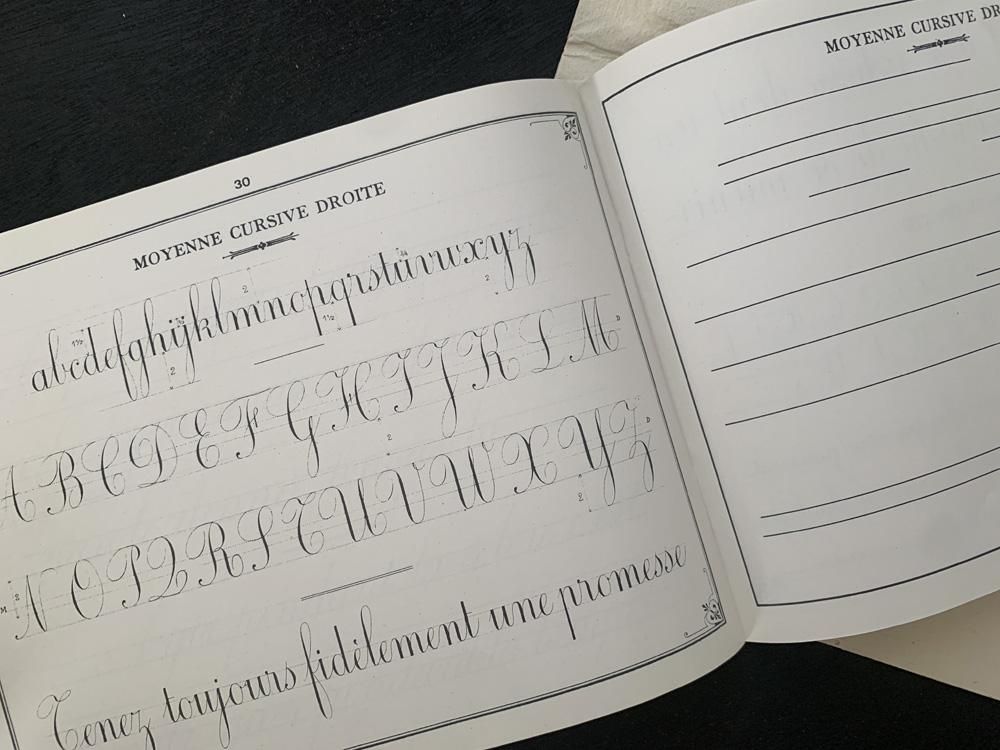 30
MOYENNE CURSIVE DROITE
abcdefghijklmnopqrstuvwxyz
A B C D E F G H I J K L M
N O P Q R S T U V W X Y Z
Tenez toujours fidèlement une promesse
MOYENNE CURSIVE DR